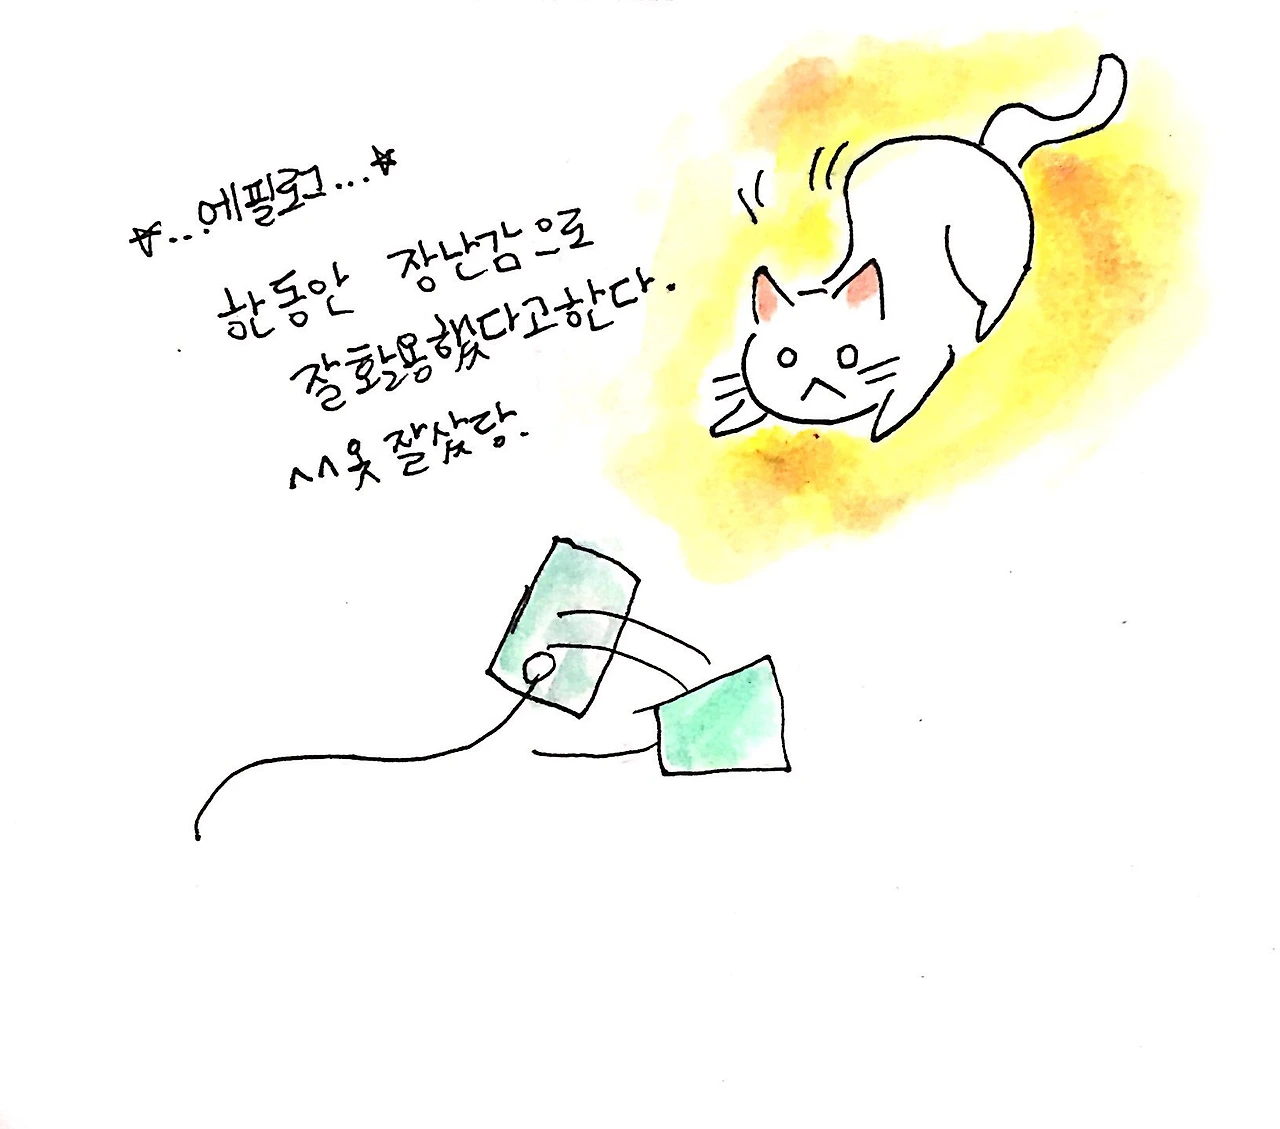 ☆...에필로그...☆
한동안 장난감으로
잘활용했다고한다.
^^옷 잘샀당.